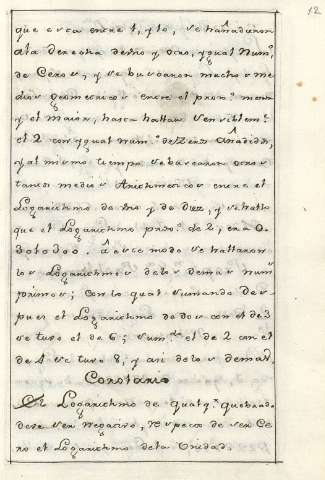 12
que esta entre 1, y 10, se hañadieron
ala derecha deUno y otro, ygual Numº
de Ceros, y se buscaron muchos me
dios geometricos entre el pronº menor
y el maior, hasta hallar sensiblemte
el 2 con ygual numº de Zeros añadidos,
y al mismo tiempo se buscaron otros
tantos medios Arithmeticos entre el
Logarithmo de Uno y de diez, y se hallo
que el Logarithmo
de 2, era 0.
â este modo se hallaron
los Logarithmos delos demas numº
primos; con lo qual sumando des-
pues el Logarithmo de dos con el de 3
se tuvo el de 6; el de 2 con el
de 4 se tuvo 8, y asi delos demas.
Corolario
El Logarithmo de qualqª quebrado
deve ser negativo, respecto de ser Ce
ro el Logarithmo dela Unidad.